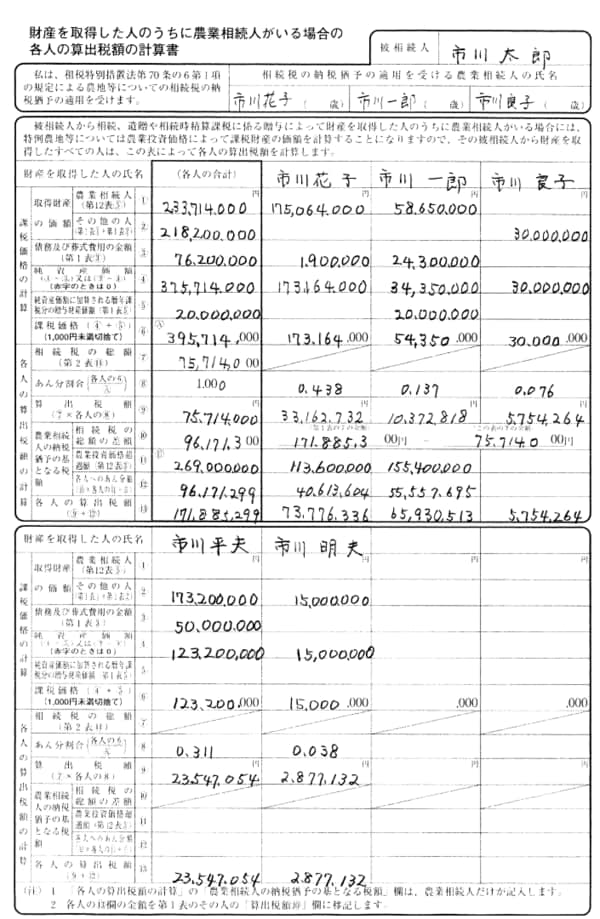 財産を取得した人のうちに農業相続人がいる場合の
各人の算出税額の計算書
被相続人 市川 太郎
私は、租税特別措置法第70条の6第1項
の規定による農地等についての相続税の納
税猶予の適用を受けます。
相続税の納税猶予の適用を受ける農業相続人の氏名
市川花子 ( 歳) 市川一郎 ( 歳) 市川良子 ( 歳)
被相続人から相続、遺贈や相続時精算課税に係る贈与によって財産を取得した人のうちに農業相続人がいる場合には、
特例農地等については農業投資価格によって課税財産の価額を計算することになりますので、その被相続人から財産を取
得したすべての人は、この表によって各人の算出税額を計算します。
財産を取得した人の氏名 (各人の合計) 市川花子 市川 一郎 市川 良子
課税価格の計算
取得財産の価額
農業相続人 (第12表⑤) 1 円 233,714,000 円 175,064,000 円 58,650,000 円
その他の人 2 218,200,000 30,000,000
債務及び葬式費用の金額 (第1表③) 3 76,200,000 1,900,000 24,300,000
純資産価額 4 375,714,000 173,164,000 34,350,000 30,000,000
(赤字のときは0)
純資産価額に加算される暦年課税分の贈与財産価額 (第1表⑤) 5 20,000,000 20,000,000
課税価格 (④+⑤) 6 Ⓐ 395,714,000 173,164,000 54,350,000 30,000,000
(1,000円未満切捨て)
各人の算出税額の計算
相続税の総額 (第2表⑪) 7 75,714,000
あん分割合 (各人の⑥/Ⓐ) 8 1.000 0.438 0.137 0.076
算出税額 (⑦×各人の⑧) 9 75,714,000 33,162,732 10,372,818 5,754,264
農業相続人の納税猶予の基となる税額
相続税の総額の差額 10 96,171,300 171,885,300円 − 75,714,000円
農業投資価格超過額 (第12表③) 11 269,000,000 113,600,000 155,400,000
各人へのあん分額 12 96,171,299 40,613,604 55,557,695
各人の算出税額 (⑨+⑫) 13 171,885,299 73,776,336 65,930,513 5,754,264
財産を取得した人の氏名 市川 平夫 市川 明夫
課税価格の計算
取得財産の価額
農業相続人 (第12表⑤) 1 円 円 円 円
その他の人 2 173,200,000 15,000,000
債務及び葬式費用の金額 (第1表③) 3 50,000,000
純資産価額 4 123,200,000 15,000,000
(赤字のときは0)
純資産価額に加算される暦年課税分の贈与財産価額 (第1表⑤) 5
課税価格 (④+⑤) 6 123,200,000 15,000,000 ,000 ,000
(1,000円未満切捨て)
各人の算出税額の計算
相続税の総額 (第2表⑪) 7
あん分割合 (各人の⑥/Ⓐ) 8 0.311 0.038
算出税額 (⑦×各人の⑧) 9 23,547,054 2,877,132
農業相続人の納税猶予の基となる税額
相続税の総額の差額 10
農業投資価格超過額 (第12表③) 11
各人へのあん分額 12
各人の算出税額 (⑨+⑫) 13 23,547,054 2,877,132
(注) 1 「各人の算出税額の計算」の「農業相続人の納税猶予の基となる税額」欄は、農業相続人だけが記入します。
2 各人の⑬欄の金額を第1表のその人の「算出税額⑩」欄に移記します。